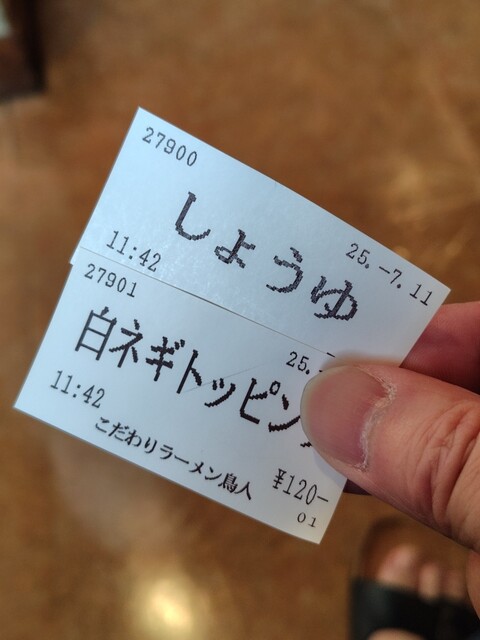 27900
しょうゆ
11:42 25.-7.11
27901
白ネギトッピン
11:42 25.
こだわりラーメン鳥人
¥120-
01